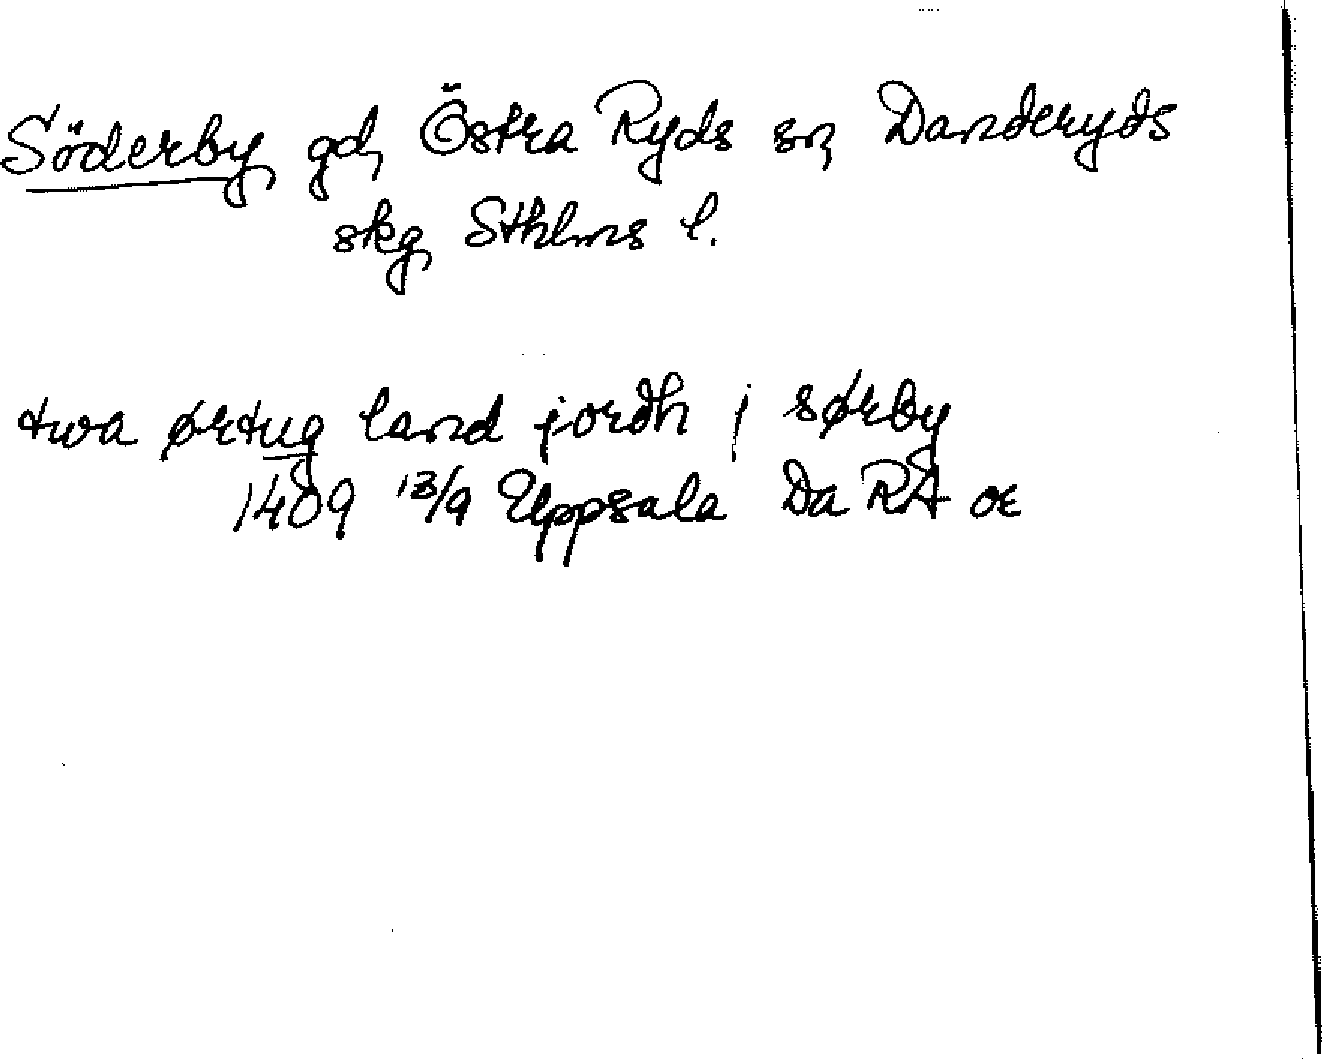 Söderby gd, Östra Ryds sn, Danderyds
skg, Sthlms l.
twa ørtug land jordh j sørby
1409 13/9 Uppsala Da RA or